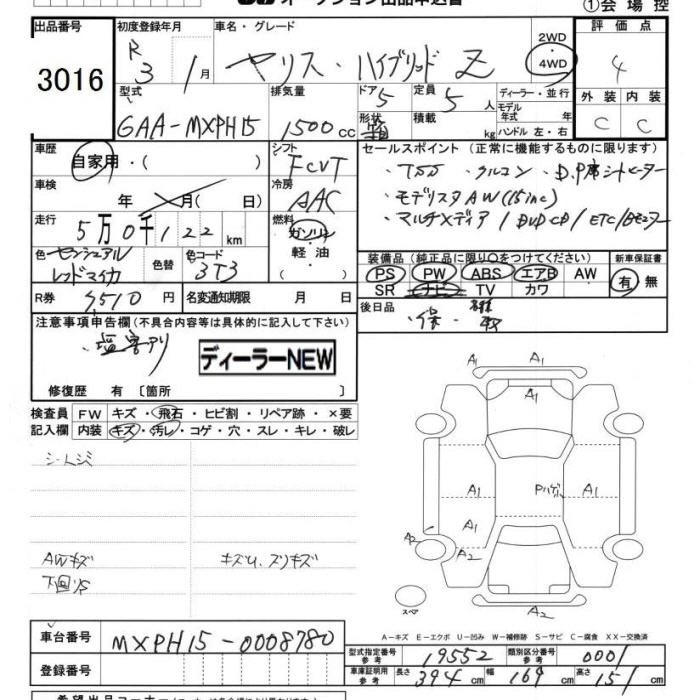 オークション出品申込書
①会場控
出品番号
3016
初度登録年月
R
3 1月
車名・グレード
ヤリス・ハイブリッド Z
2WD
・4WD
評価点
4
外装 内装
C C
型式
6AA-MXPH15
排気量
1500cc
ドア
5
形状
箱
定員
5人
積載
kg
ディーラー・並行
モデル
年式 年
ハンドル 左・右
車歴
自家用・( )
シフト
FCVT
車検
年 月( 日)
冷房
AAC
走行
5万0千122km
燃料
ガソリン
軽・油
( )
色 センシュアル
レッドマイカ
色替
色コード
3T3
R券
9510円
名変通知期限 月 日
セールスポイント (正常に機能するものに限ります)
・TSS ・クルコン ・D.P席シートヒーター
・モデリスタAW(15inc)
・マルチメディア/DVD CD/ETC/Bモニター
装備品(純正品に限り○をつけてください)
PS PW ABS エアB AW
SR ナビ TV カワ
新車保証書
有・無
後日品
・保・取
注意事項申告欄(不具合内容等は具体的に記入して下さい)
・塩害アリ
ディーラーNEW
修復歴 有 〔箇所 〕
検査員
記入欄
FW キズ・飛石・ヒビ割・リペア跡・×要
内装 キズ・汚レ・コゲ・穴・スレ・キレ・破レ
シートスジ
AWキズ
キズU、スリキズ
下回リS
A1
A1
A1
A1
A1
Pハゲ
A1
A2
A2
A2
スペア
A-キズ E-エクボ U-凹み W-補修跡 S-サビ C-腐食 XX-交換済
車台番号
MXPH15-0008780
登録番号
型式指定番号
参考
19552
類別区分番号
参考
0001
車庫証明用
参考
長さ
394cm
幅
169cm
高さ
151cm
希望出品コーナー